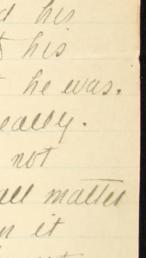 his
his
he was.
really.
not
all matter
it